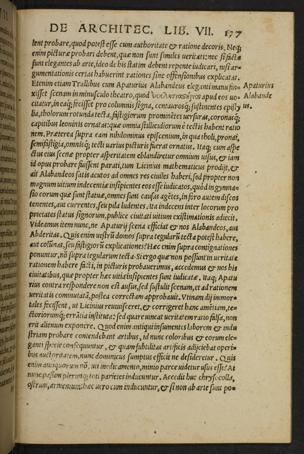 DE ARCHITEC. LIB. VII. 177
lent probare, quod potest esse cum authoritate & ratione decoris, Neq;
enim picturæ probari debent, quæ non sunt similes veritati: nec si factæ
sunt elegantes ab arte, ideo de his statim debent repente iudicari, nisi ar-
gumentationes certas habuerint rationes sine offensionibus explicatas.
Etenim etiam Trallibus cum Apaturius Alabandeus eleganti manu fin- Apaturius
xisset scenam in minusculo theatro, quod apud eos vo- Alabande
citatur, in eaq; fecisset pro columnis signa, centaurosq; sustinentes episty us.
lia, tholorum rotunda tecta, fastigiorum prominentes versuras, coronasq;
capitibus leoninis ornatas: quæ omnia stillicidiorum è tectis habent ratio
nem. Præterea supra eam nihilominus episcenium, in qua tholi, pronai,
semifastigia, omnisq; tecti varius picturis fuerat ornatus. Itaq; cum aspe
ctus eius scenæ propter asperitatem eblandiretur omnium visus, & iam
id opus probare fuissent parati, tum Licinius mathematicus prodijt, &
ait Alabandeos satis acutos ad omnes res ciuiles haberi, sed propter non
magnum vitium indecentiæ insipientes eos esse iudicatos, quod in gymna-
sio eorum quæ sunt statuæ, omnes sunt causas agentes, in foro autem discos
tenentes, aut currentes, seu pila ludentes. Ita indecens inter locorum pro
prietates status signorum, publice ciuitati vitium existimationis adiecit.
Videamus item nunc, ne Apaturij scena efficiat & nos Alabandeos, aut
Abderitas. Quis enim vestrûm domos supra tegularû tecta potest habere,
aut columnas, seu fastigiorum explicationes? Hæc enim supra contignationes
ponuntur, nõ supra tegularum tecta. Si ergo quæ non possunt in veritate
rationem habere facti, in picturis probauerimus, accedemus & nos his
ciuitatibus, quæ propter hæc vitia insipientes sunt iudicatæ. Itaq; Apatu
rius contra respondere non est ausus, sed sustulit scenam, et ad rationem
veritatis commutatã, postea correctam approbauit. Vtinam dij immor=
tales fecissent, ut Licinius reuiuisceret, & corrigeret hanc amentiam, tec-
toriorumq; errãtia instituta: sed quare vincat veritatem ratio falsa, non
erit alienum exponere. Quod enim antiqui insumentes laborem & indu
striam probare contendebant artibus, id nunc coloribus & eorum ele-
ganti specie consequuntur, & quam subtilitas artificis adijciebat operi-
bus auctoritatem, nunc dominicus sumptus efficit ne desideretur. Quis
enim antiquorum nõ, uti medicamento, minio parce videtur usus esse? At
nunc passim plerunq; toti parietes inducuntur. Accedit huc chrysocolla,
ostrum, armenium: hæc vero cum inducuntur, & si non ab arte sunt po=